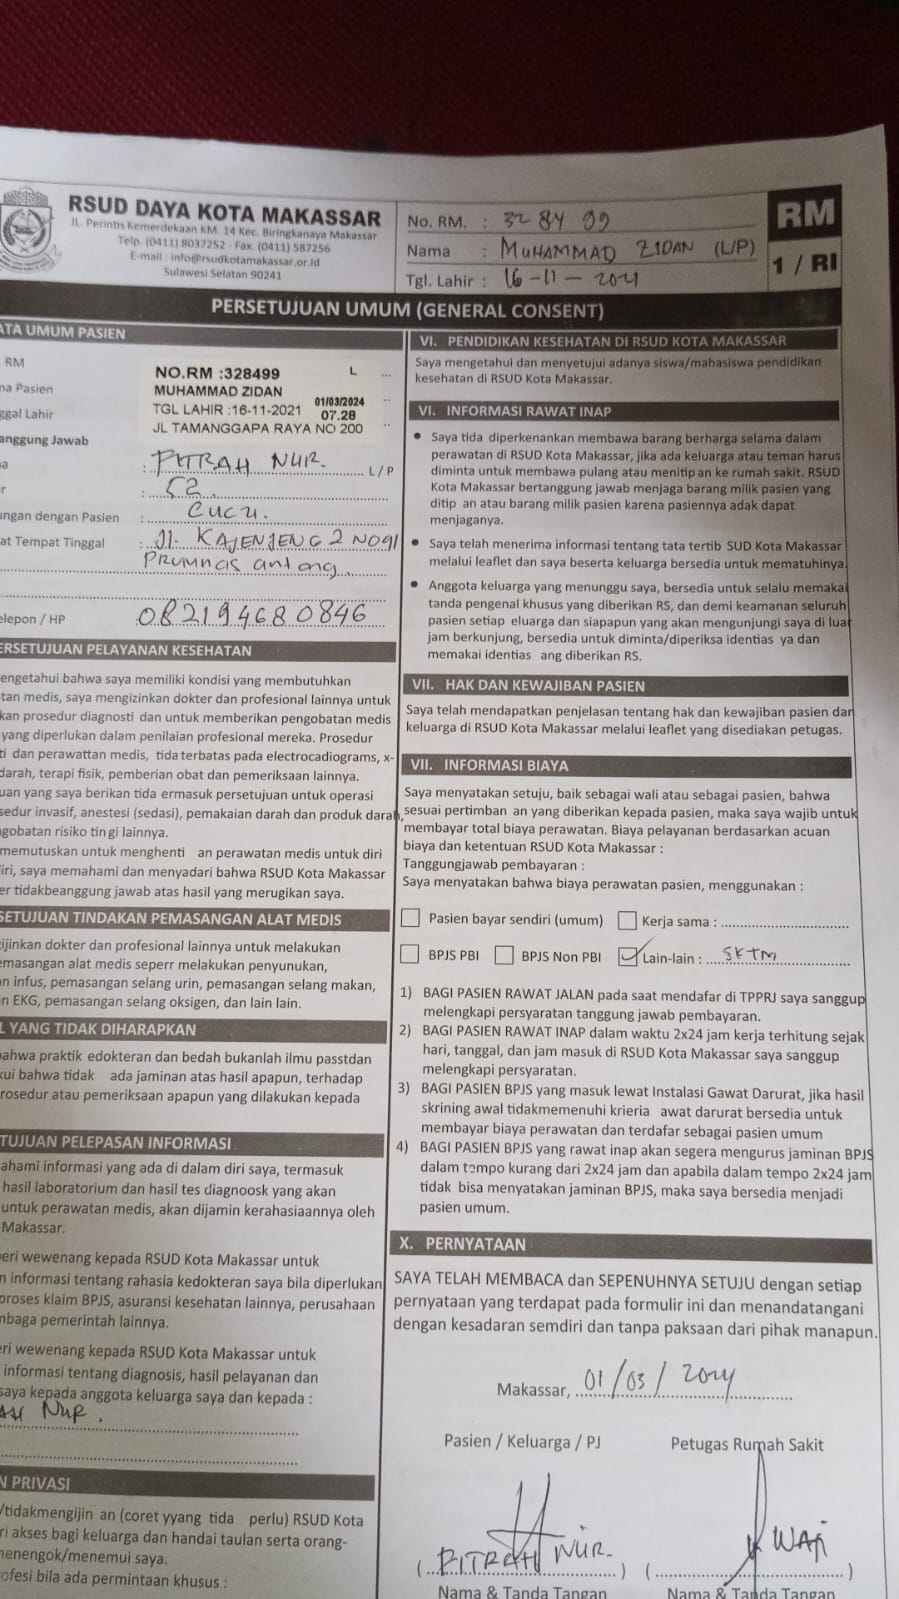 RSUD DAYA KOTA MAKASSAR
JL. Perintis Kemerdekaan KM. 14 Kec. Biringkanaya Makassar
Telp. (0411) 8037252 - Fax. (0411) 587256
E-mail : info@rsudkotamakassar.or.id
Sulawesi Selatan 90241
No. RM. : 32 84 99
Nama : MUHAMMAD ZIDAN (L/P)
Tgl. Lahir : 16-11-2021
RM
1 / RI
PERSETUJUAN UMUM (GENERAL CONSENT)
ATA UMUM PASIEN
RM
na Pasien
ggal Lahir
NO.RM :328499 L
MUHAMMAD ZIDAN
TGL LAHIR :16-11-2021
01/03/2024
07.28
JL TAMANGGAPA RAYA NO 200
anggung Jawab
a : FITRAH NUR. L / P
r : 52
ungan dengan Pasien : CUCU.
at Tempat Tinggal : Jl. KAJENJENG 2 NO91
Prumnas antang
elepon / HP : 082194680846
ERSETUJUAN PELAYANAN KESEHATAN
engetahui bahwa saya memiliki kondisi yang membutuhkan
tan medis, saya mengizinkan dokter dan profesional lainnya untuk
kan prosedur diagnosti dan untuk memberikan pengobatan medis
yang diperlukan dalam penilaian profesional mereka. Prosedur
ti dan perawattan medis, tida terbatas pada electrocadiograms, x-
darah, terapi fisik, pemberian obat dan pemeriksaan lainnya.
uan yang saya berikan tida ermasuk persetujuan untuk operasi
sedur invasif, anestesi (sedasi), pemakaian darah dan produk darah,
gobatan risiko tin gi lainnya.
memutuskan untuk menghenti an perawatan medis untuk diri
iri, saya memahami dan menyadari bahwa RSUD Kota Makassar
er tidakbeanggung jawab atas hasil yang merugikan saya.
SETUJUAN TINDAKAN PEMASANGAN ALAT MEDIS
ijinkan dokter dan profesional lainnya untuk melakukan
emasangan alat medis seperr melakukan penyunukan,
n infus, pemasangan selang urin, pemasangan selang makan,
n EKG, pemasangan selang oksigen, dan lain lain.
L YANG TIDAK DIHARAPKAN
bahwa praktik edokteran dan bedah bukanlah ilmu passtdan
kui bahwa tidak ada jaminan atas hasil apapun, terhadap
rosedur atau pemeriksaan apapun yang dilakukan kepada
TUJUAN PELEPASAN INFORMASI
ahami informasi yang ada di dalam diri saya, termasuk
hasil laboratorium dan hasil tes diagnoosk yang akan
untuk perawatan medis, akan dijamin kerahasiaannya oleh
Makassar.
eri wewenang kepada RSUD Kota Makassar untuk
n informasi tentang rahasia kedokteran saya bila diperlukan
proses klaim BPJS, asuransi kesehatan lainnya, perusahaan
mbaga pemerintah lainnya.
eri wewenang kepada RSUD Kota Makassar untuk
informasi tentang diagnosis, hasil pelayanan dan
saya kepada anggota keluarga saya dan kepada :
AH NUR.
N PRIVASI
/tidakmengijin an (coret yyang tida perlu) RSUD Kota
ri akses bagi keluarga dan handai taulan serta orang-
nenengok/menemui saya.
ofesi bila ada permintaan khusus :
VI. PENDIDIKAN KESEHATAN DI RSUD KOTA MAKASSAR
Saya mengetahui dan menyetujui adanya siswa/mahasiswa pendidikan
kesehatan di RSUD Kota Makassar.
VI. INFORMASI RAWAT INAP
• Saya tida diperkenankan membawa barang berharga selama dalam
perawatan di RSUD Kota Makassar, jika ada keluarga atau teman harus
diminta untuk membawa pulang atau menitip an ke rumah sakit. RSUD
Kota Makassar bertanggung jawab menjaga barang milik pasien yang
ditip an atau barang milik pasien karena pasiennya adak dapat
menjaganya.
• Saya telah menerima informasi tentang tata tertib SUD Kota Makassar
melalui leaflet dan saya beserta keluarga bersedia untuk mematuhinya
• Anggota keluarga yang menunggu saya, bersedia untuk selalu memakai
tanda pengenal khusus yang diberikan RS, dan demi keamanan seluruh
pasien setiap eluarga dan siapapun yang akan mengunjungi saya di luar
jam berkunjung, bersedia untuk diminta/diperiksa identias ya dan
memakai identias ang diberikan RS.
VII. HAK DAN KEWAJIBAN PASIEN
Saya telah mendapatkan penjelasan tentang hak dan kewajiban pasien dan
keluarga di RSUD Kota Makassar melalui leaflet yang disediakan petugas.
VII. INFORMASI BIAYA
Saya menyatakan setuju, baik sebagai wali atau sebagai pasien, bahwa
sesuai pertimban an yang diberikan kepada pasien, maka saya wajib untuk
membayar total biaya perawatan. Biaya pelayanan berdasarkan acuan
biaya dan ketentuan RSUD Kota Makassar :
Tanggungjawab pembayaran :
Saya menyatakan bahwa biaya perawatan pasien, menggunakan :
Pasien bayar sendiri (umum) Kerja sama :
BPJS PBI BPJS Non PBI Lain-lain : SKTM
1) BAGI PASIEN RAWAT JALAN pada saat mendafar di TPPRJ saya sanggup
melengkapi persyaratan tanggung jawab pembayaran.
2) BAGI PASIEN RAWAT INAP dalam waktu 2x24 jam kerja terhitung sejak
hari, tanggal, dan jam masuk di RSUD Kota Makassar saya sanggup
melengkapi persyaratan.
3) BAGI PASIEN BPJS yang masuk lewat Instalasi Gawat Darurat, jika hasil
skrining awal tidakmemenuhi krieria awat darurat bersedia untuk
membayar biaya perawatan dan terdafar sebagai pasien umum
4) BAGI PASIEN BPJS yang rawat inap akan segera mengurus jaminan BPJS
dalam tempo kurang dari 2x24 jam dan apabila dalam tempo 2x24 jam
tidak bisa menyatakan jaminan BPJS, maka saya bersedia menjadi
pasien umum.
X. PERNYATAAN
SAYA TELAH MEMBACA dan SEPENUHNYA SETUJU dengan setiap
pernyataan yang terdapat pada formulir ini dan menandatangani
dengan kesadaran semdiri dan tanpa paksaan dari pihak manapun.
Makassar, 01/03/2024
Pasien / Keluarga / PJ Petugas Rumah Sakit
( FITRAH NUR. ) ( )
Nama & Tanda Tangan Nama & Tanda Tangan